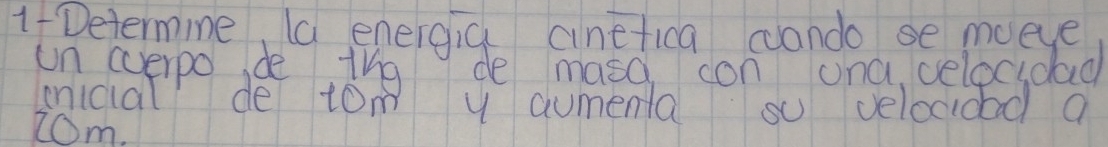 1-Determine la energía cinética cuando se mueve
un cuerpo de 1kg de masa con una velocidad
inicial de 10m y aumenta su velocidad a
20m.